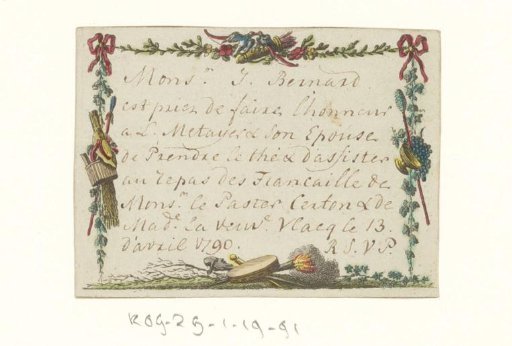 Monsr. J. Bernard
est priez de faire l'honneur
a L. Metayer & Son Epouse
de Prendre le thé & d'assister
au repas des Fiancaille de
Monsr. le Pastor Certon & de
Made. la veuve. Vlacq le 13.
d'avril 1790. R.S.V.P.
KOG-ZG-1-19-91